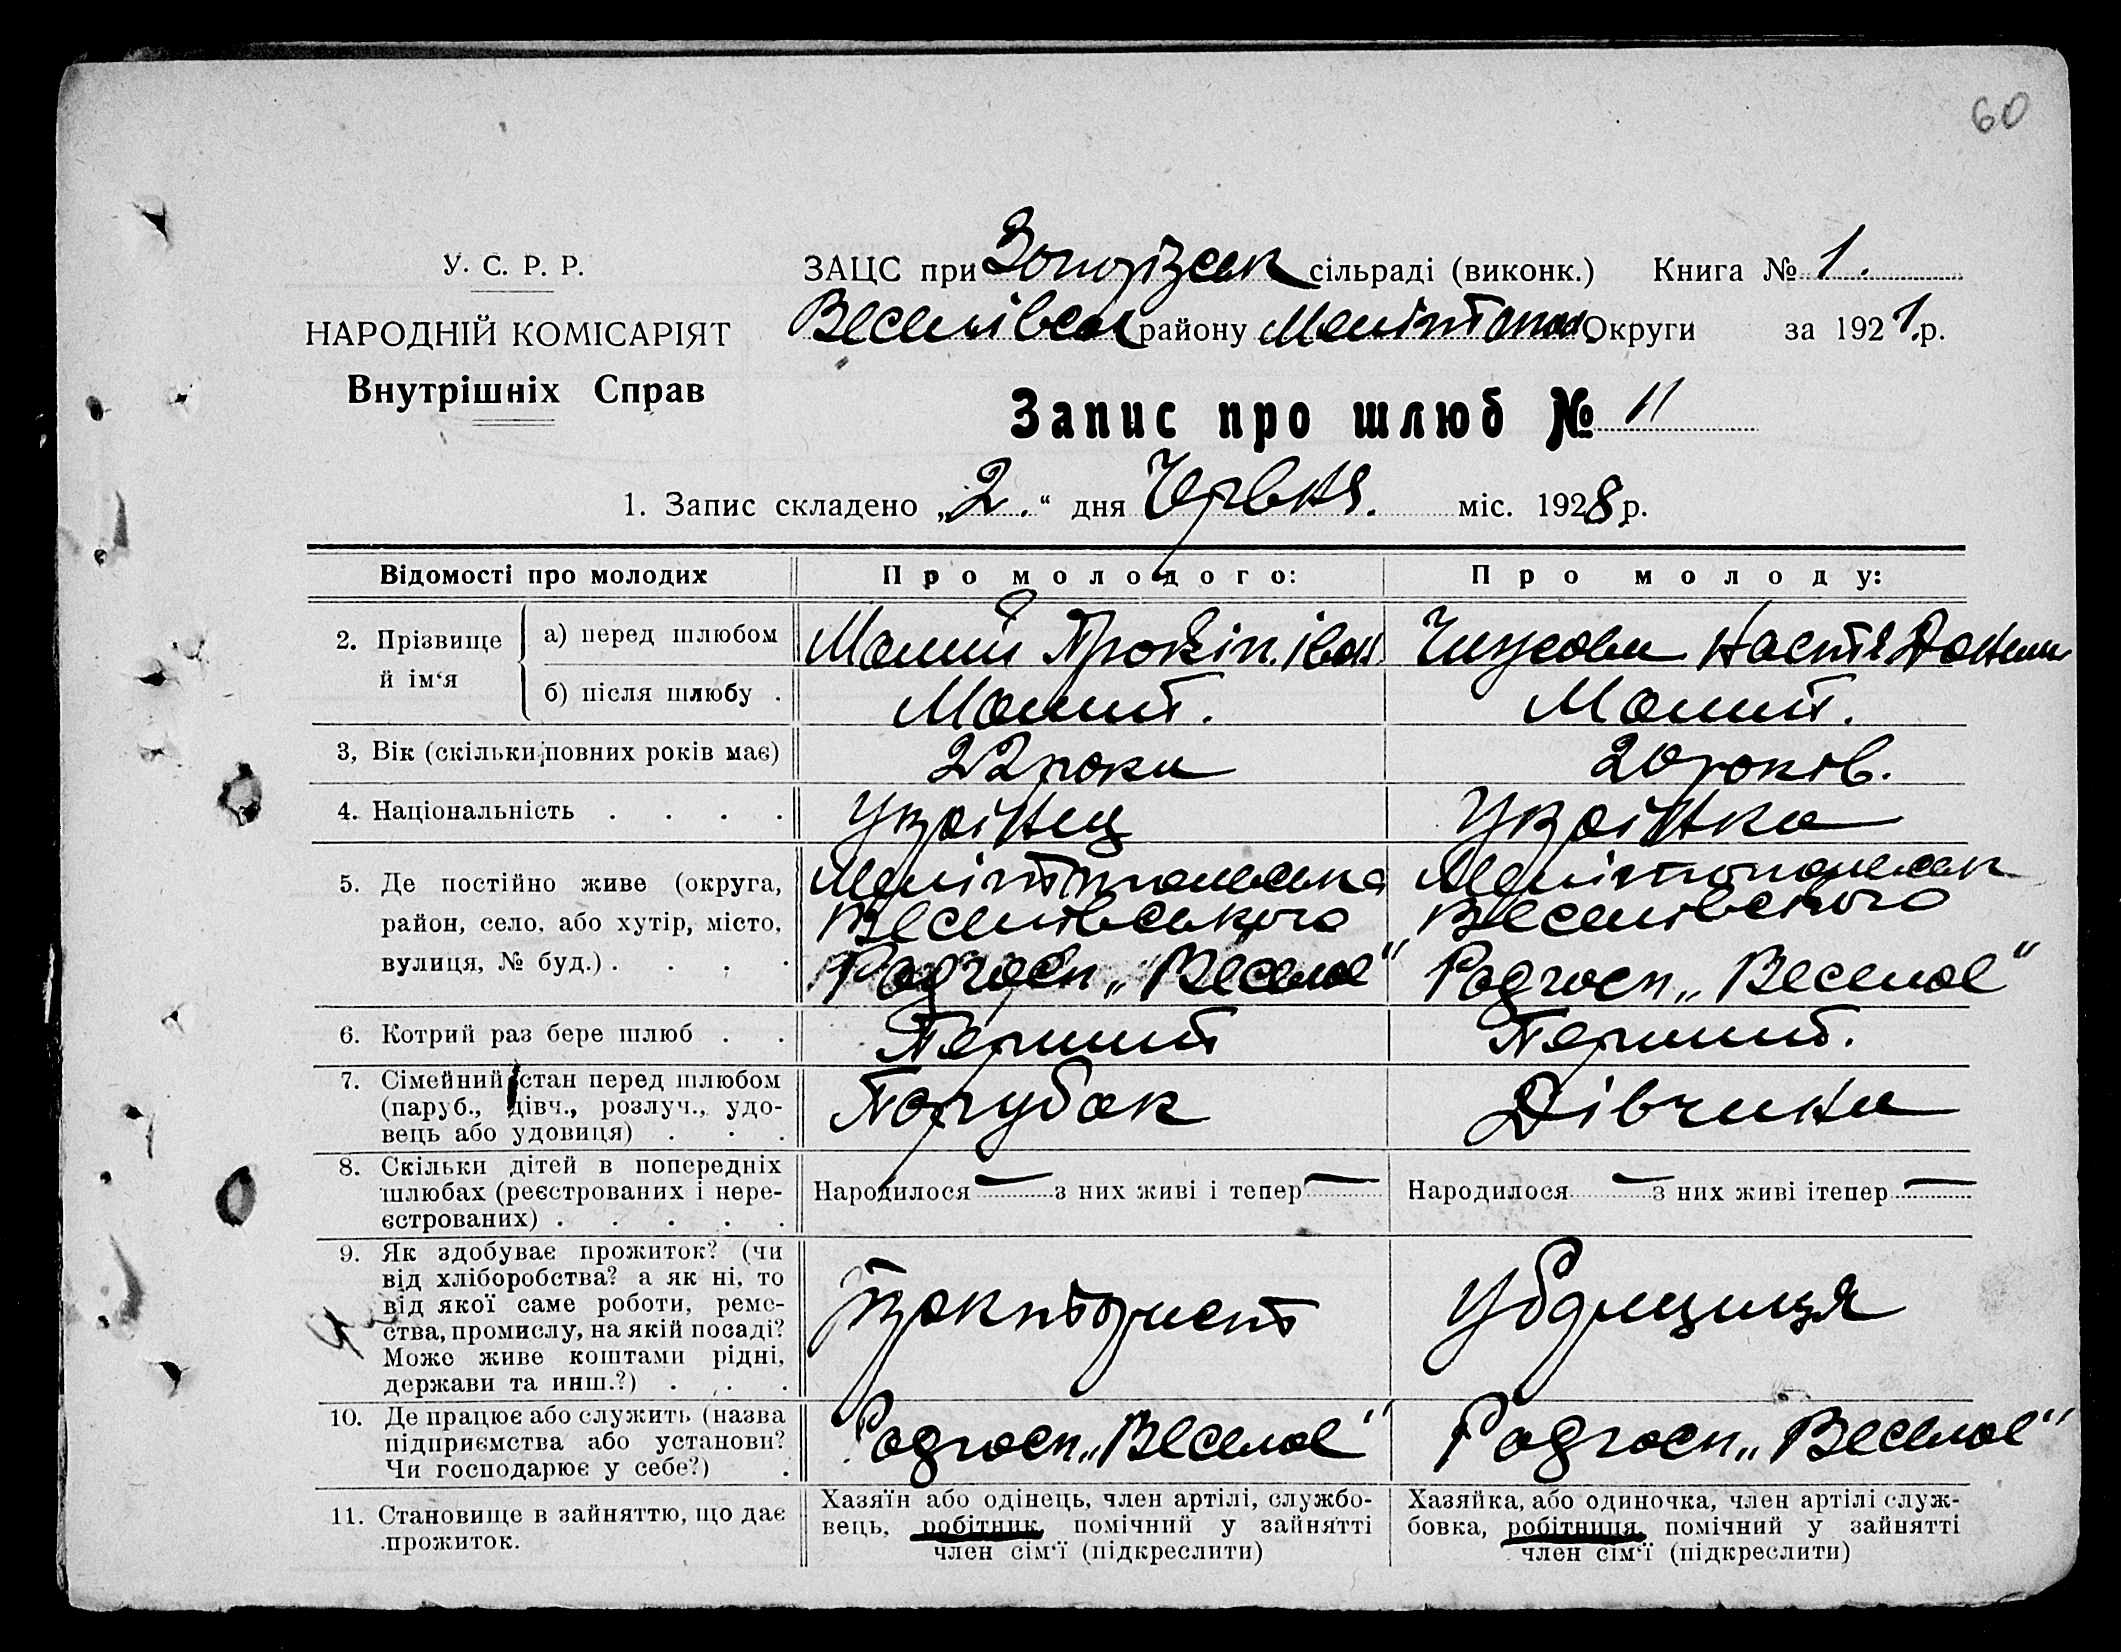 60
У. С. Р. Р.
НАРОДНІЙ КОМІСАРІЯТ
Внутрішніх Справ
ЗАЦС при сільраді (виконк.) Книга № 1.
Веселівськ району Меліт Округи за 1921.р.
Запис про шлюб № 11
1. Запис складено „2.“ дня Червня. міс. 1928 р.
Відомості про молодих
Про молодого:
Про молоду:
2. Прізвище й ім‘я
а) перед шлюбом
Малий Іван
Настя
б) після шлюбу .
Малий.
Малий.
3, Вік (скільки повних років має)
22 роки
20 років.
4. Національність . . . .
Украінец
Украінка
5. Де постійно живе (округа,
район, село, або хутір, місто,
вулиця, № буд.) . . . .
Мелітопольська
Веселівського
Радгосп „Веселое“
Мелітопольськ
Веселівського
Радгосп „Веселое“
6. Котрий раз бере шлюб . .
Перший
Перший.
7. Сімейний стан перед шлюбом
(паруб., дівч., розлуч., удо-
вець або удовиця) . . .
Парубок
Дівчина
8. Скільки дітей в попередніх
шлюбах (реєстрованих і нере-
єстрованих) . . . . .
Народилося — з них живі і тепер —
Народилося — з них живі ітепер —
9. Як здобуває прожиток? (чи
від хліборобства? а як ні, то
від якої саме роботи, реме-
ства, промислу, на якій посаді?
Може живе коштами рідні,
держави та инш.?) . . .
Тракторист
10. Де працює або служить (назва
підприємства або установи?
Чи господарює у себе?) .
Радгосп „Веселое“
Радгосп „Веселое“
11. Становище в зайняттю, що дає
прожиток.
Хазяїн або одінець, член артілі, службо-
вець, робітник, помічний у зайнятті
член сім‘ї (підкреслити)
Хазяйка, або одиночка, член артілі служ-
бовка, робітниця, помічний у зайнятті
член сім‘ї (підкреслити)